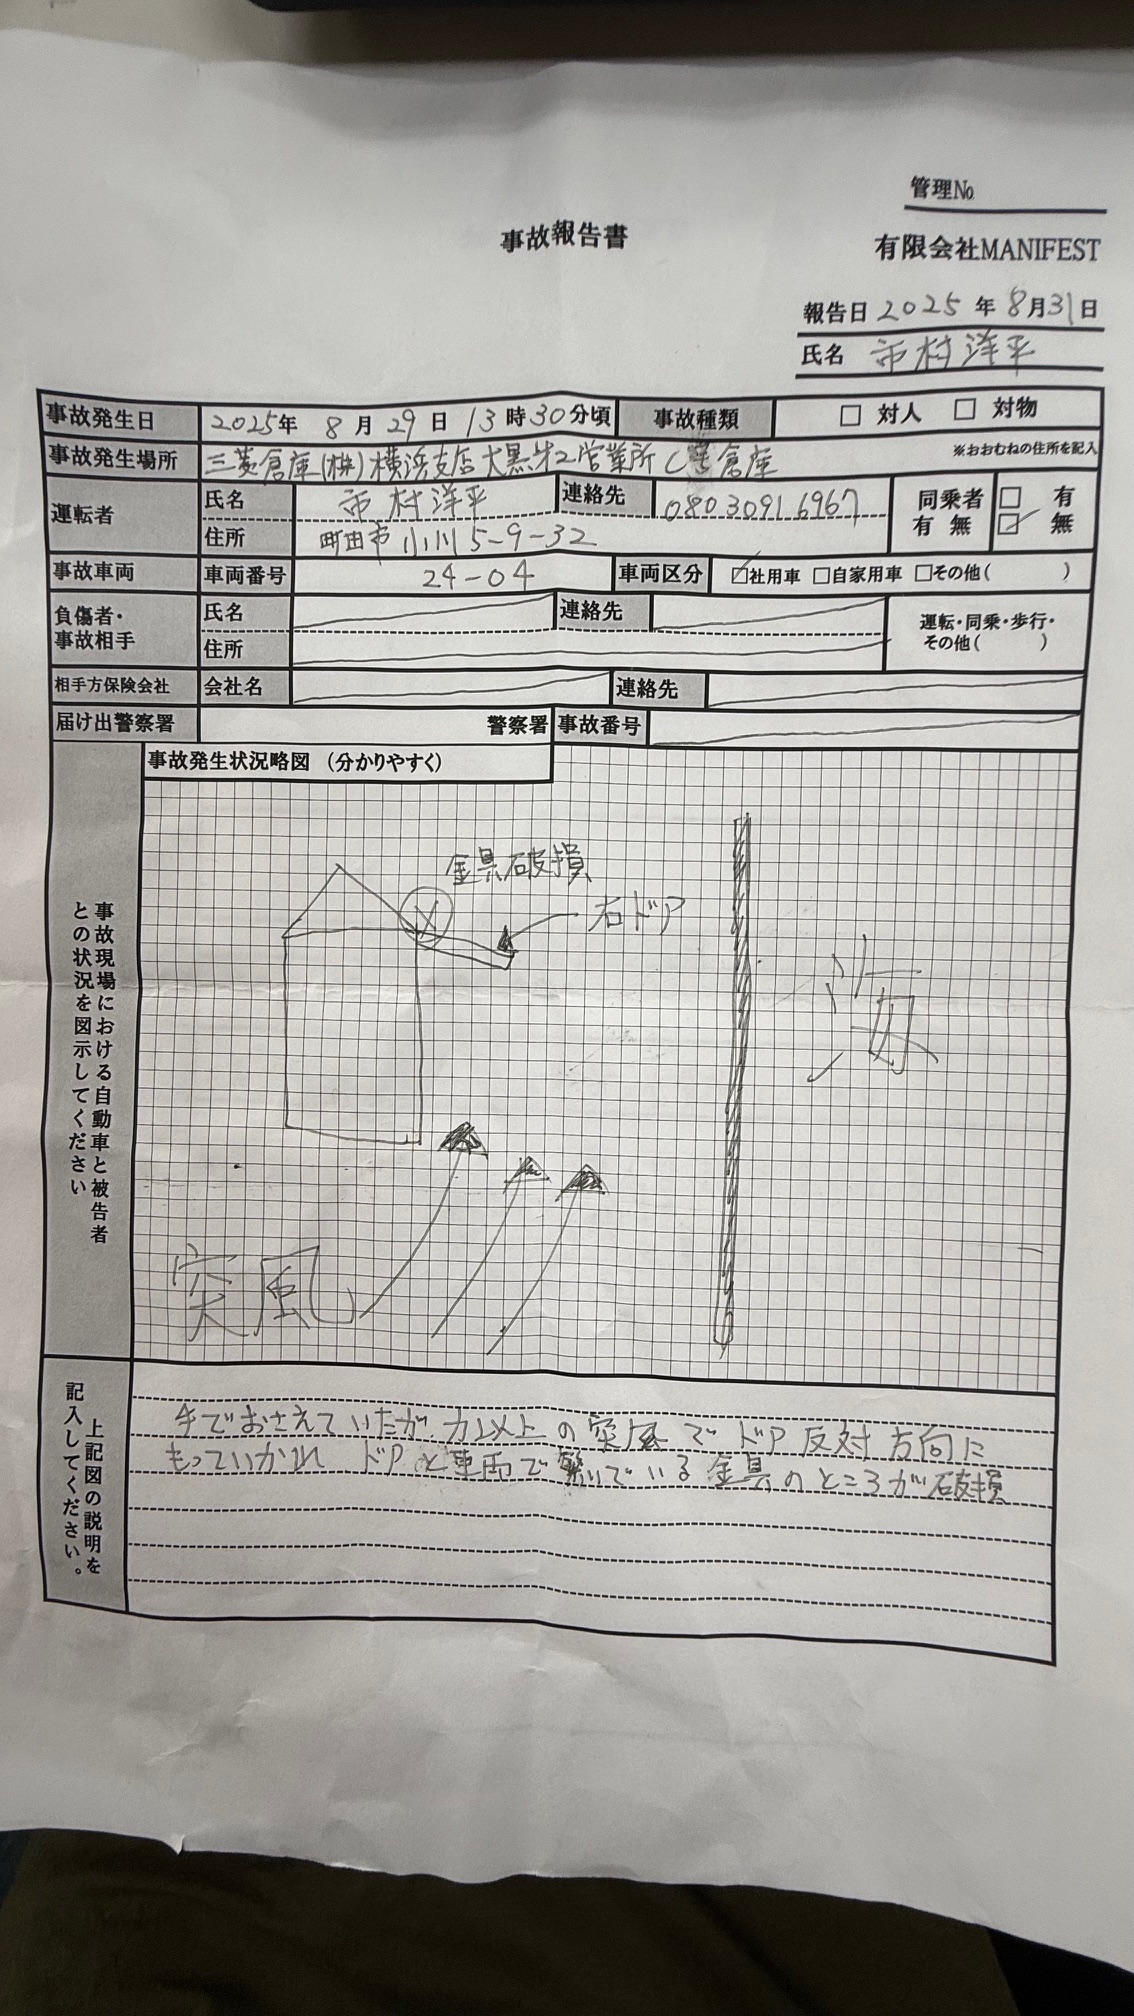 管理№
事故報告書
有限会社MANIFEST
報告日 2025 年 8月31日
氏名 市村洋平
事故発生日 2025年 8月 29日 13時30分頃 事故種類 □ 対人 □ 対物
事故発生場所 三菱倉庫(株)横浜支店大黒第2営業所C号倉庫 ※おおむねの住所を記入
運転者 氏名 市村洋平 連絡先 080 3091 6967 同乗者 有 無 □ 有 ☑ 無
住所 町田市小川5-9-32
事故車両 車両番号 24-04 車両区分 ☑社用車 □自家用車 □その他( )
負傷者・事故相手 氏名 連絡先 運転・同乗・歩行・その他( )
住所
相手方保険会社 会社名 連絡先
届け出警察署 警察署 事故番号
事故発生状況略図 (分かりやすく)
事故現場における自動車と被告者
との状況を図示してください
金具破損
右ドア
海
突風
上記図の説明を
記入してください。
手でおさえていたが力以上の突風でドア反対方向に
もっていかれ ドアと車両で繋いでいる金具のところが破損